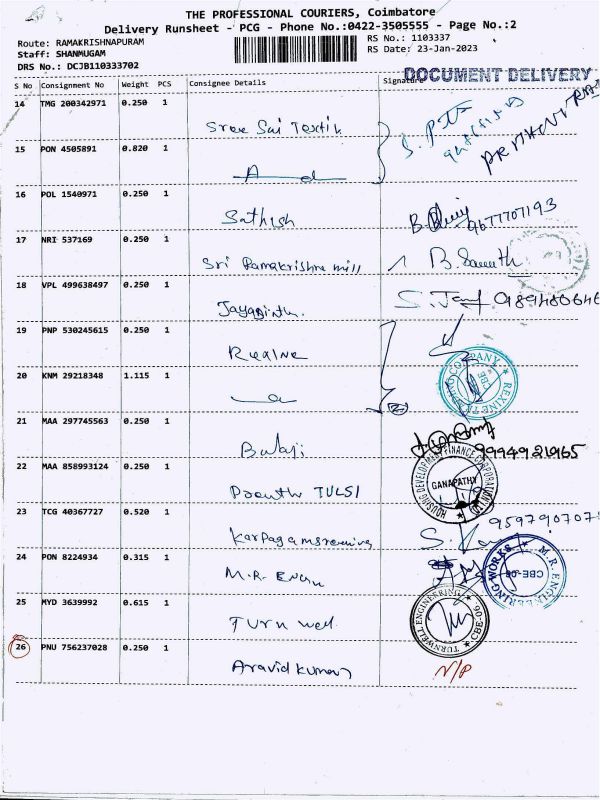 THE PROFESSIONAL COURIERS, Coimbatore
Delivery Runsheet - PCG - Phone No.:0422-3505555 - Page No.:2
Route: RAMAKRISHNAPURAM RS No.: 1103337
Staff: SHANMUGAM RS Date: 23-Jan-2023
DRS No.: DCJB110333702
DOCUMENT DELIVERY
S No Consignment No Weight PCS Consignee Details Signature
14 TMG 200342971 0.250 1
Sree Sai Textile
15 PON 4505891 0.820 1
16 POL 1540971 0.250 1
Sathish 9677707193
17 NRI 537169 0.250 1
Sri Ramakrishna mill
18 VPL 499638497 0.250 1
19 PNP 530245615 0.250 1
20 KNM 29218348 1.115 1
REXINE COMPANY
CBE
21 MAA 297745563 0.250 1
Balaji 9994921965
22 MAA 858993124 0.250 1
TULSI
HOUSING DEVELOPMENT FINANCE CORPORATION LTD
GANAPATHY
23 TCG 40367727 0.520 1
24 PON 8224934 0.315 1
M.R.
M.R. ENGINEERING WORKS
CBE-06
25 MYD 3639992 0.615 1
Turn well
TURNWELL ENGINEERING
CBE-06
26 PNU 756237028 0.250 1
Aravid kumar N/P